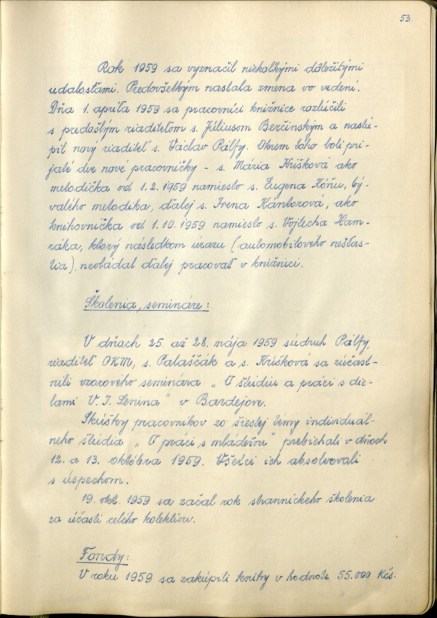 53
Rok 1959 sa vyznačil niekoľkými dôležitými
udalosťami. Predovšetkým nastala zmena vo vedení.
Dňa 1. apríla 1959 sa pracovníci knižnice rozlúčili
s predošlým riaditeľom s. Júliusom Berčinským a nastú-
pil nový riaditeľ s. Václav Pálfy. Okrem toho boli pri-
jaté dve nové pracovníčky - s. Mária Krišková ako
metodička od 1.2.1959 namiesto s. Eugena Kónu, bý-
valého metodika, ďalej s. Irena Kanberová, ako
knihovníčka od 1.10.1959 namiesto s. Vojtecha Ham-
žáka, ktorý následkom úrazu (automobilového nešťas-
tia), nevládal ďalej pracovať v knižnici.
Školenia, semináre:
V dňoch 25. až 28. mája 1959 súdruh Pálfy,
riaditeľ OKM, s. Palaščák a s. Krišková sa zúčast-
nili vzorového seminára „O štúdiu a práci s die-
lami V. I. Lenina" v Bardejove.
Skúšky pracovníkov zo šiestej témy individuál-
neho štúdia „O práci s mládežou" prebiehali v dňoch
12. a 13. októbra 1959. Všetci ich absolvovali
s úspechom.
19. okt. 1959 sa začal rok straníckeho školenia
za účasti celého kolektívu.
Fondy:
V roku 1959 sa zakúpili knihy v hodnote 55.099 Kčs.